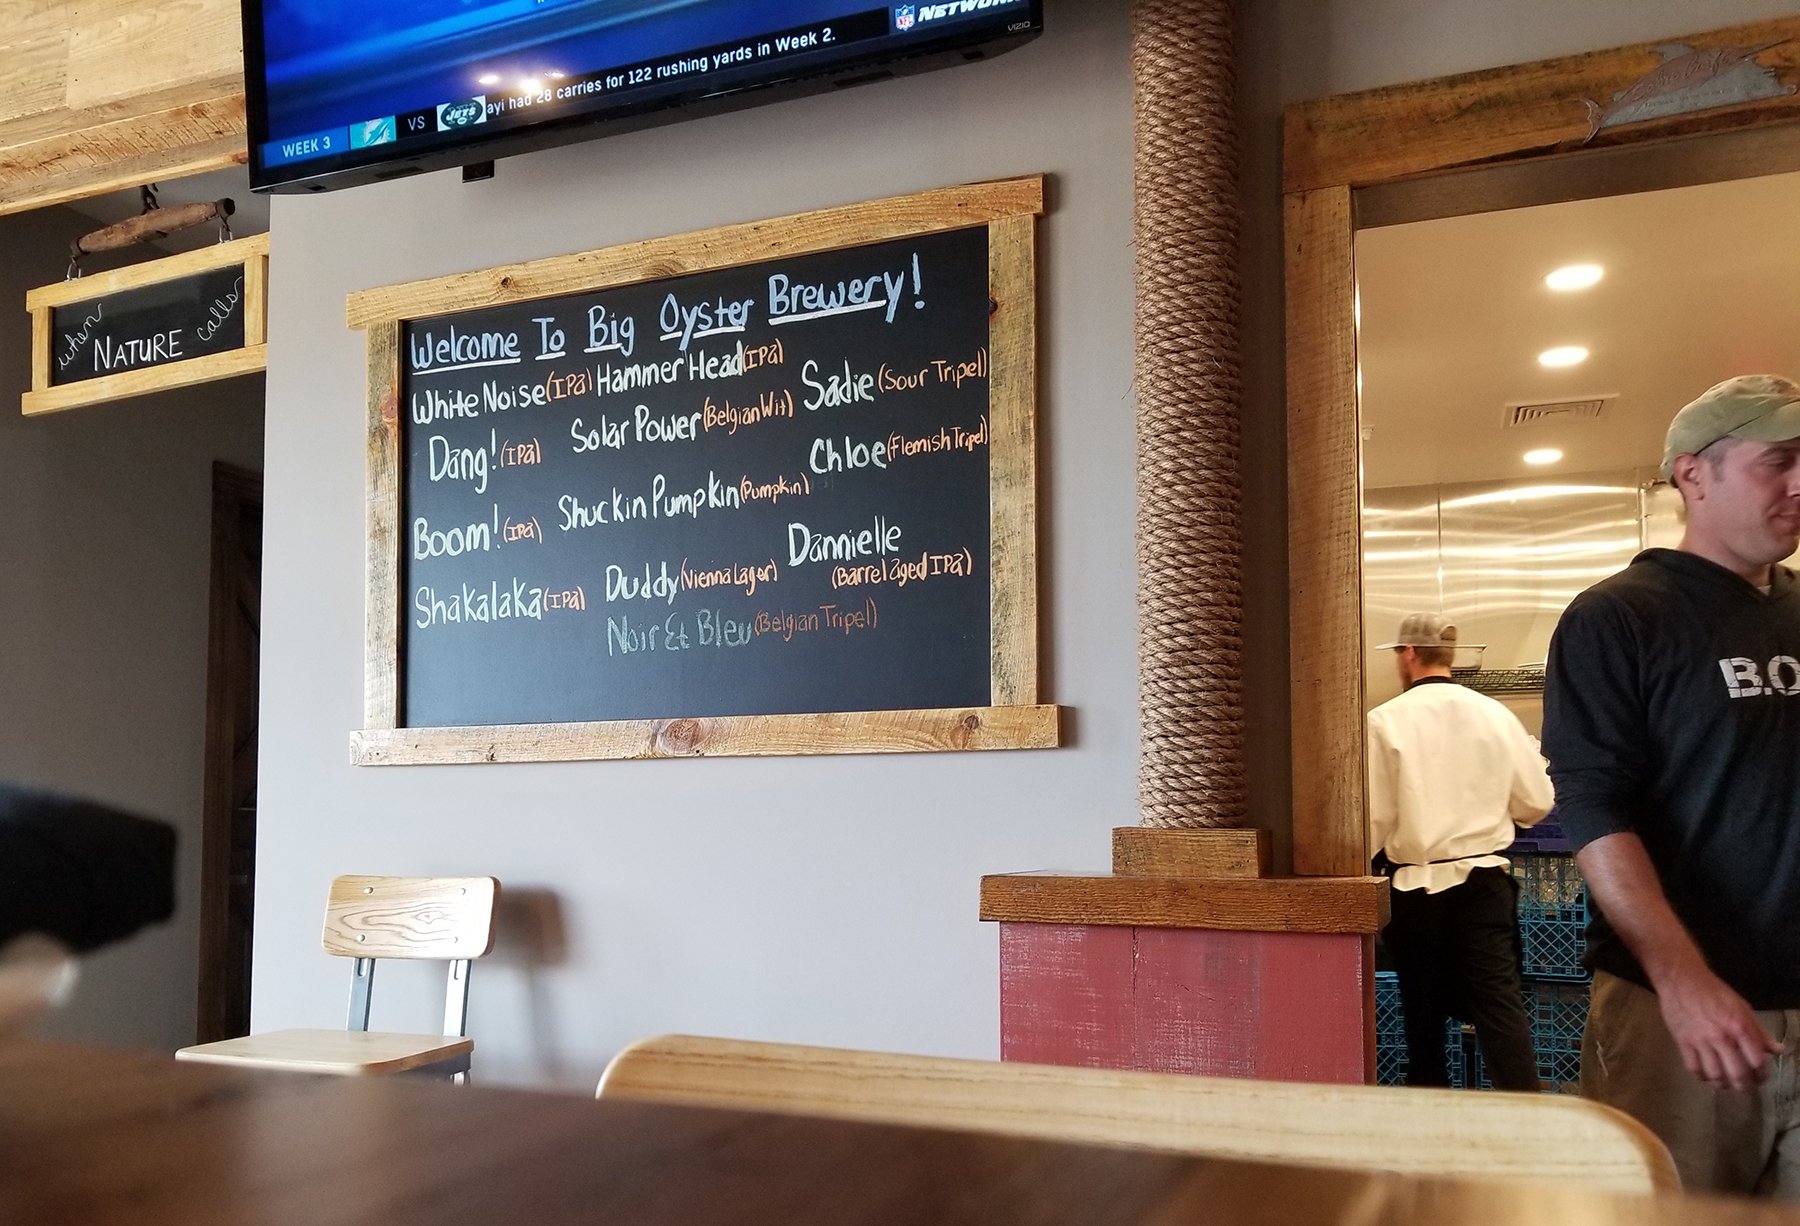 NFL NETWORK
VIZIO
ayi had 28 carries for 122 rushing yards in Week 2.
WEEK 3 VS JETS
when NATURE calls
Welcome To Big Oyster Brewery!
White Noise (IPa) Hammer Head (IPa)
Sadie (Sour Tripel)
Dang! (IPa) Solar Power (Belgian Wit)
Chloe (Flemish Tripel)
Boom! (IPa) Shuckin Pumpkin (Pumpkin)
Dannielle
(Barrel aged IPa)
Shakalaka (IPa) Duddy (Vienna Lager)
Noir Et Bleu (Belgian Tripel)
B.O